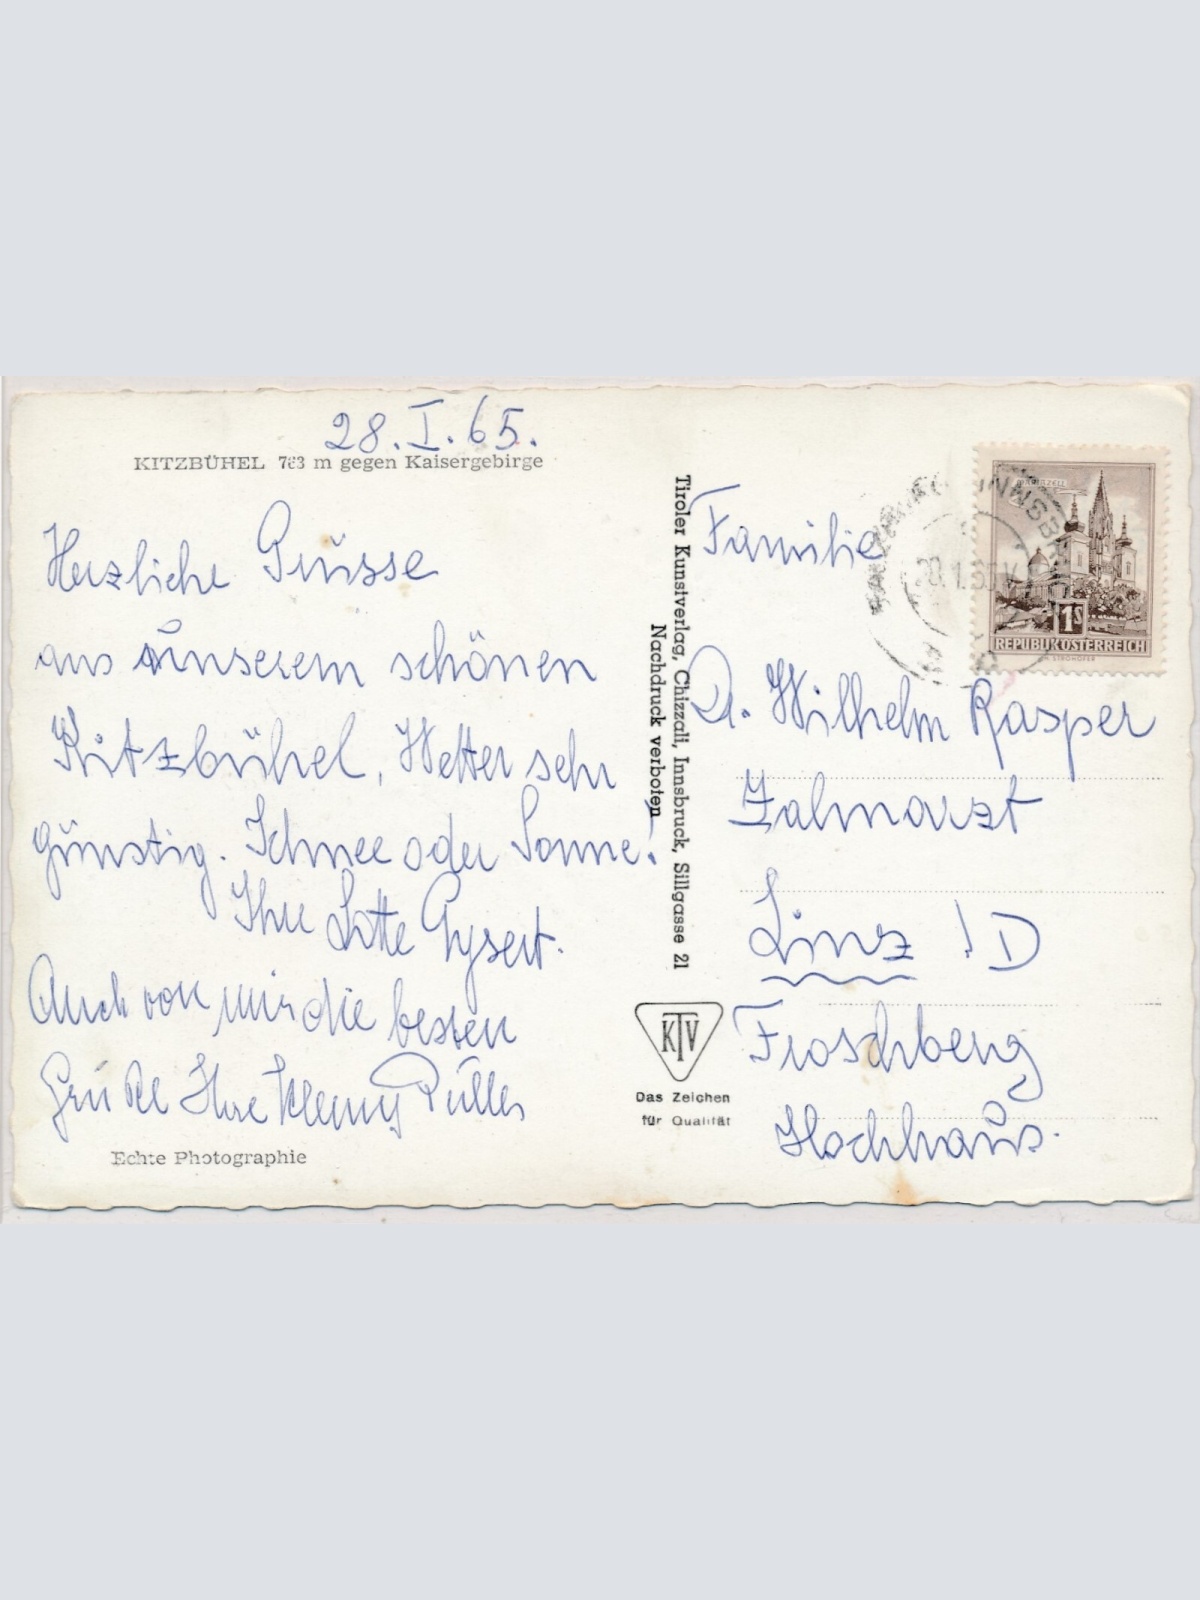 28.I.65.
KITZBÜHEL 763 m gegen Kaisergebirge
Herzliche Grüsse
aus unserem schönen
Kitzbühel, Wetter sehr
günstig. Schnee oder Sonne!
Ihre Lotte
Auch von mir die besten
Grüße Ihre
Echte Photographie
Tiroler Kunstverlag, Chizzali, Innsbruck, Sillgasse 21
Nachdruck verboten
KTV
Das Zeichen
für Qualität
MARIAZELL
1S
REPUBLIK ÖSTERREICH
Familie
Dr. Wilhelm Rasper
Zahnarzt
Linz /D
Froschberg
Hochhaus.